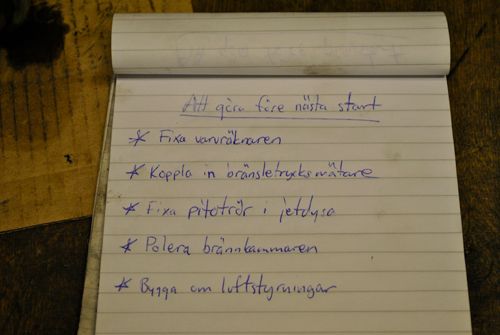 Att göra före nästa start
* Fixa varvräknaren
* Koppla in bränsletrycksmätare
* Fixa pitotrör i jetdysa
* Polera brännkammaren
* Bygga om luftstyrningar